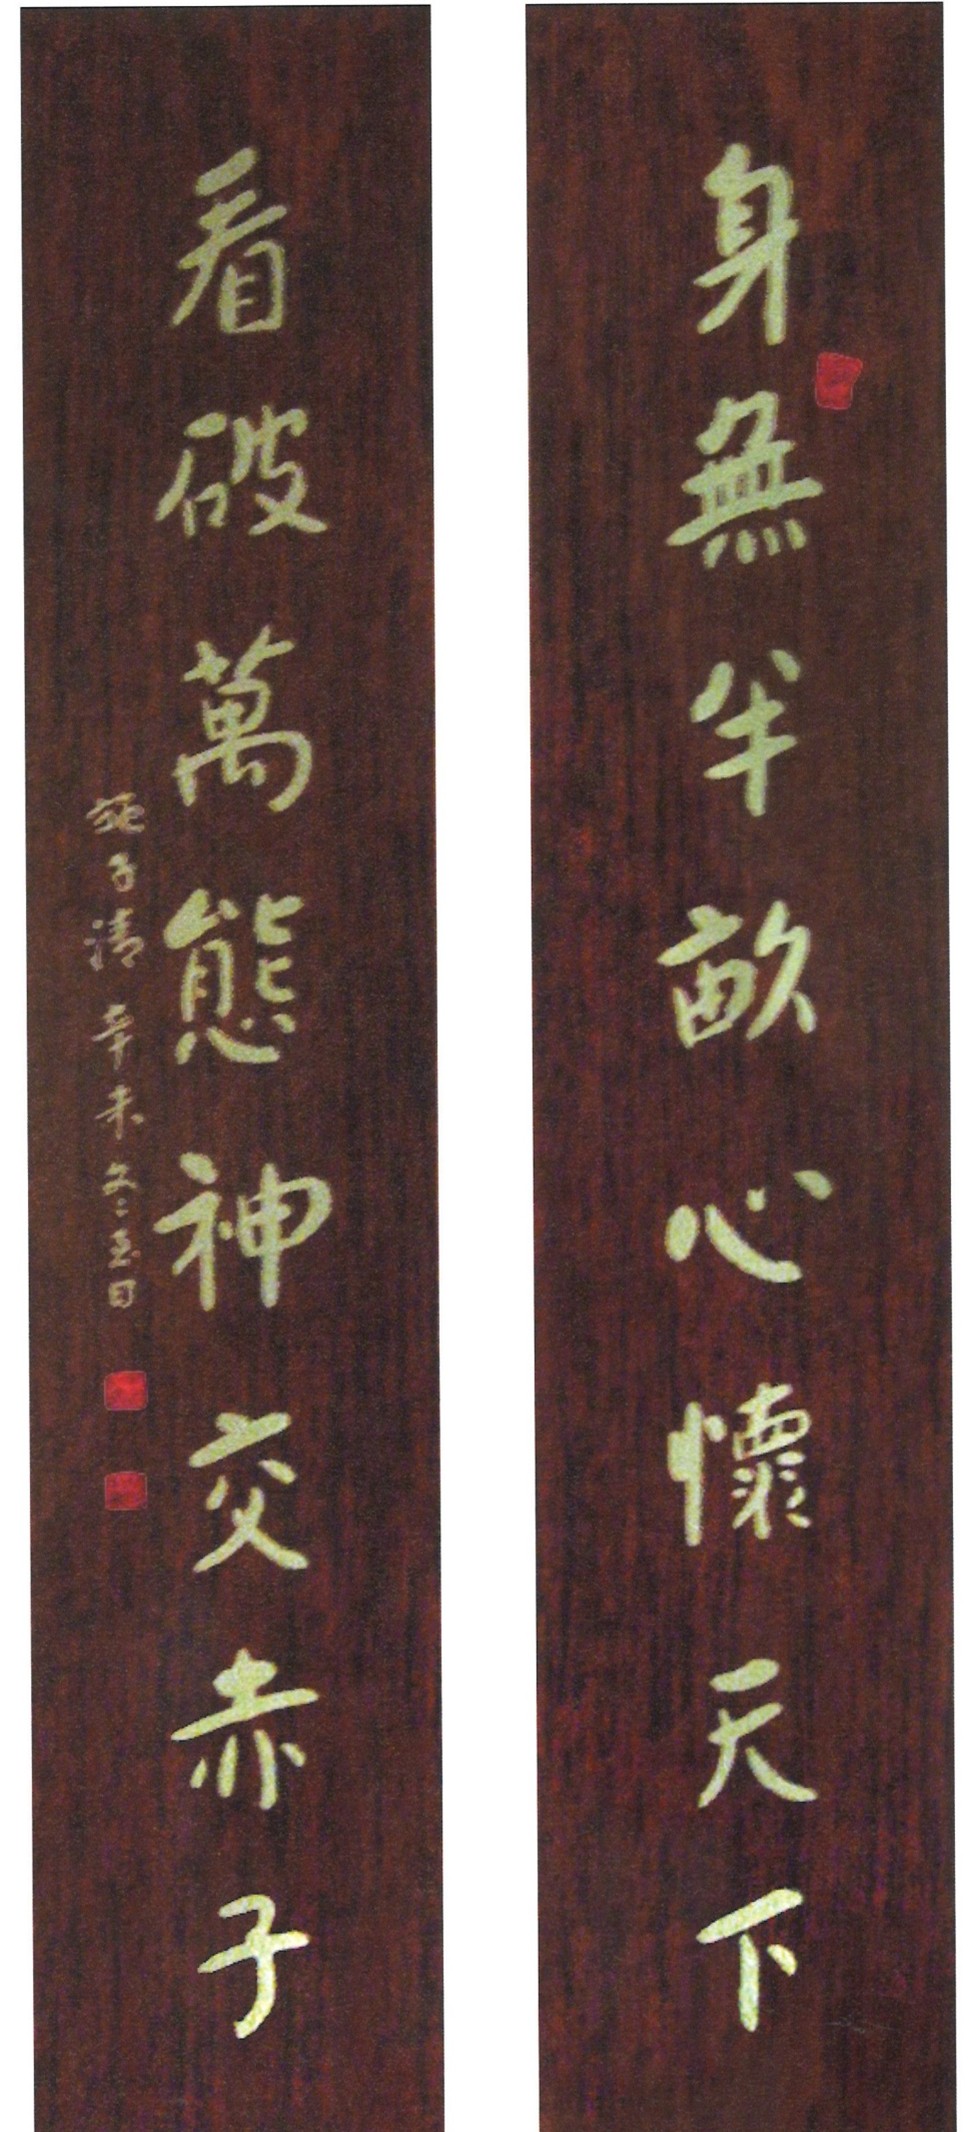 身無半畝心懷天下
看破萬態神交赤子
施子清 辛未冬至日